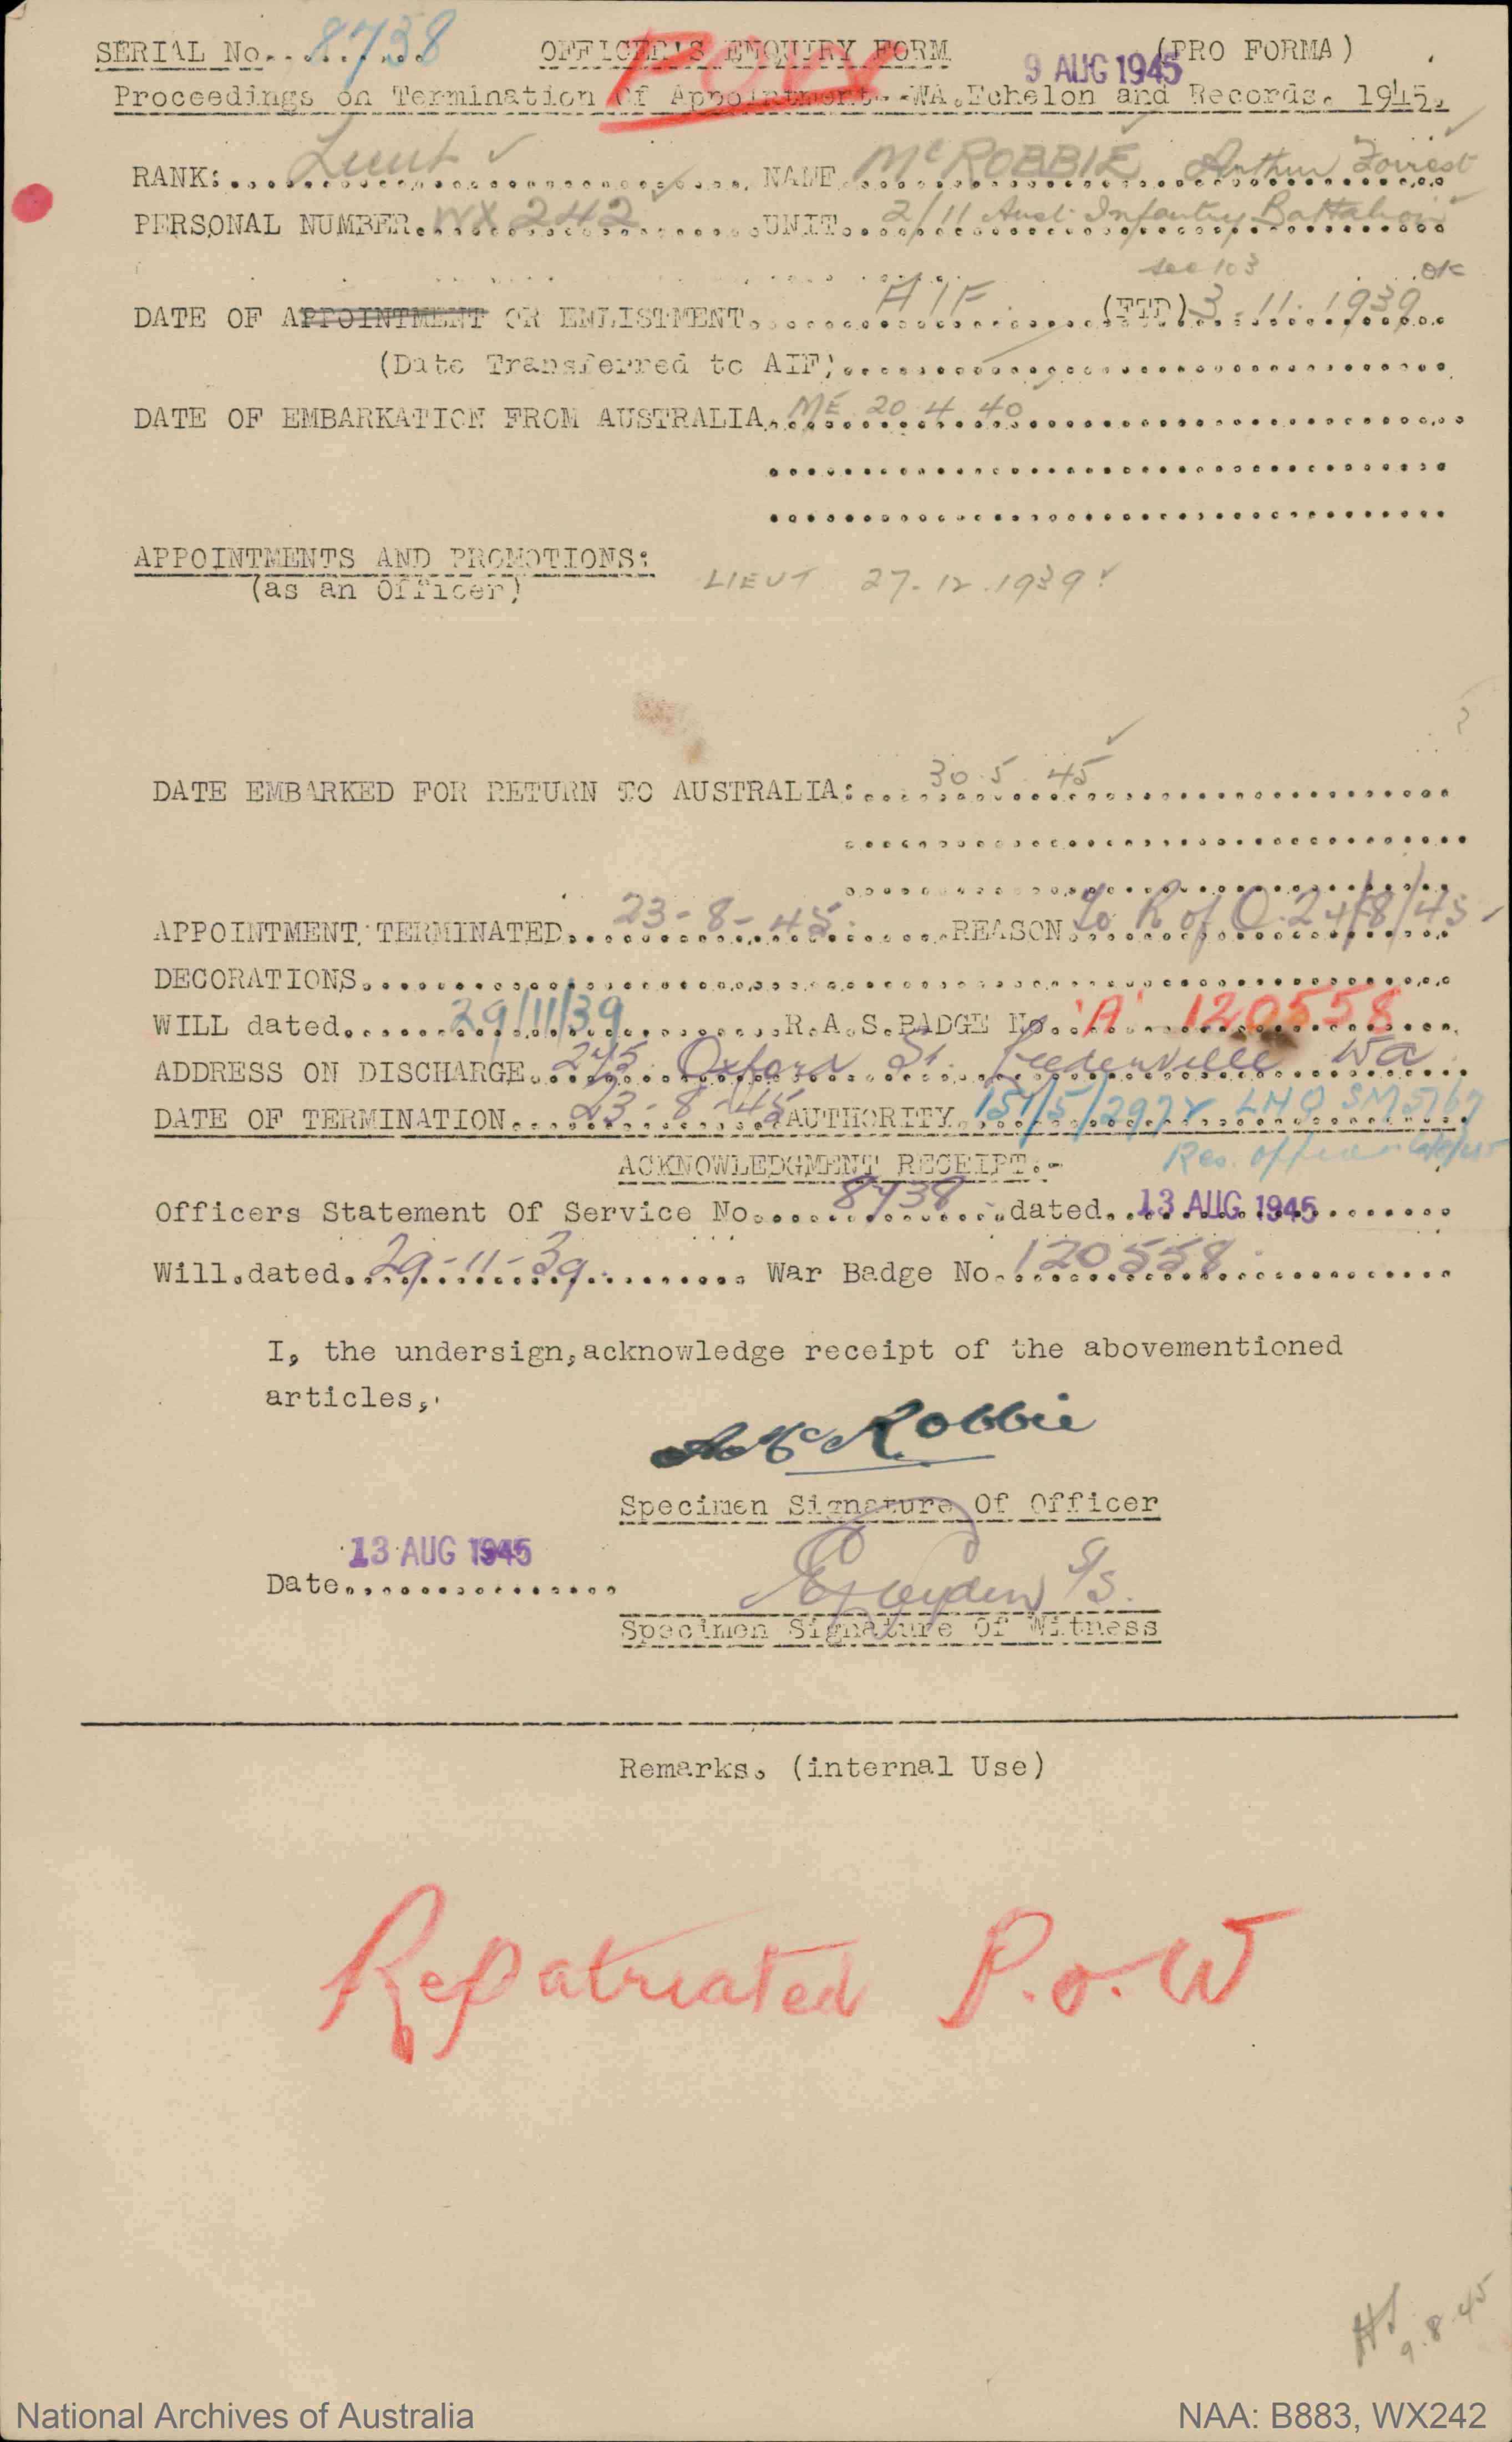 SERIAL No. 8738 OFFICER'S ENQUIRY FORM (PRO FORMA)
POW
9 AUG 1945
Proceedings on Termination Of Appointment - WA.Echelon and Records. 1945.
RANK: Lieut NAME McROBBIE Arthur Forrest
PERSONAL NUMBER. WX 242 UNIT. 2/11 Aust Infantry Battalion
see 103 OK
DATE OF APPOINTMENT OR ENLISTMENT. AIF. (FTD) 3.11.1939
(Date Transferred to AIF)
DATE OF EMBARKATION FROM AUSTRALIA. ME 20 4 40
APPOINTMENTS AND PROMOTIONS: LIEUT 27.12.1939
(as an Officer)
?
DATE EMBARKED FOR RETURN TO AUSTRALIA: 30.5.45
APPOINTMENT TERMINATED. 23-8-45. REASON. To R of O. 24/8/45
DECORATIONS.
WILL dated. 29/11/39 R.A.S.BADGE No. 'A' 120558
ADDRESS ON DISCHARGE. 245 Oxford St. Leederville WA.
DATE OF TERMINATION. 23-8-45 AUTHORITY. 151/5/297 LHQ SM5767
Res. of
ACKNOWLEDGMENT RECEIPT.-
Officers Statement Of Service No. 8738 dated. 13 AUG 1945
Will.dated. 29-11-39. War Badge No. 120558.
I, the undersign,acknowledge receipt of the abovementioned
articles,.
A McRobbie
Specimen Signature Of Officer
13 AUG 1945
Date
S/S.
Specimen Signature Of Witness
Remarks. (internal Use)
Repatriated P.o.W
9.8.45
National Archives of Australia NAA: B883, WX242